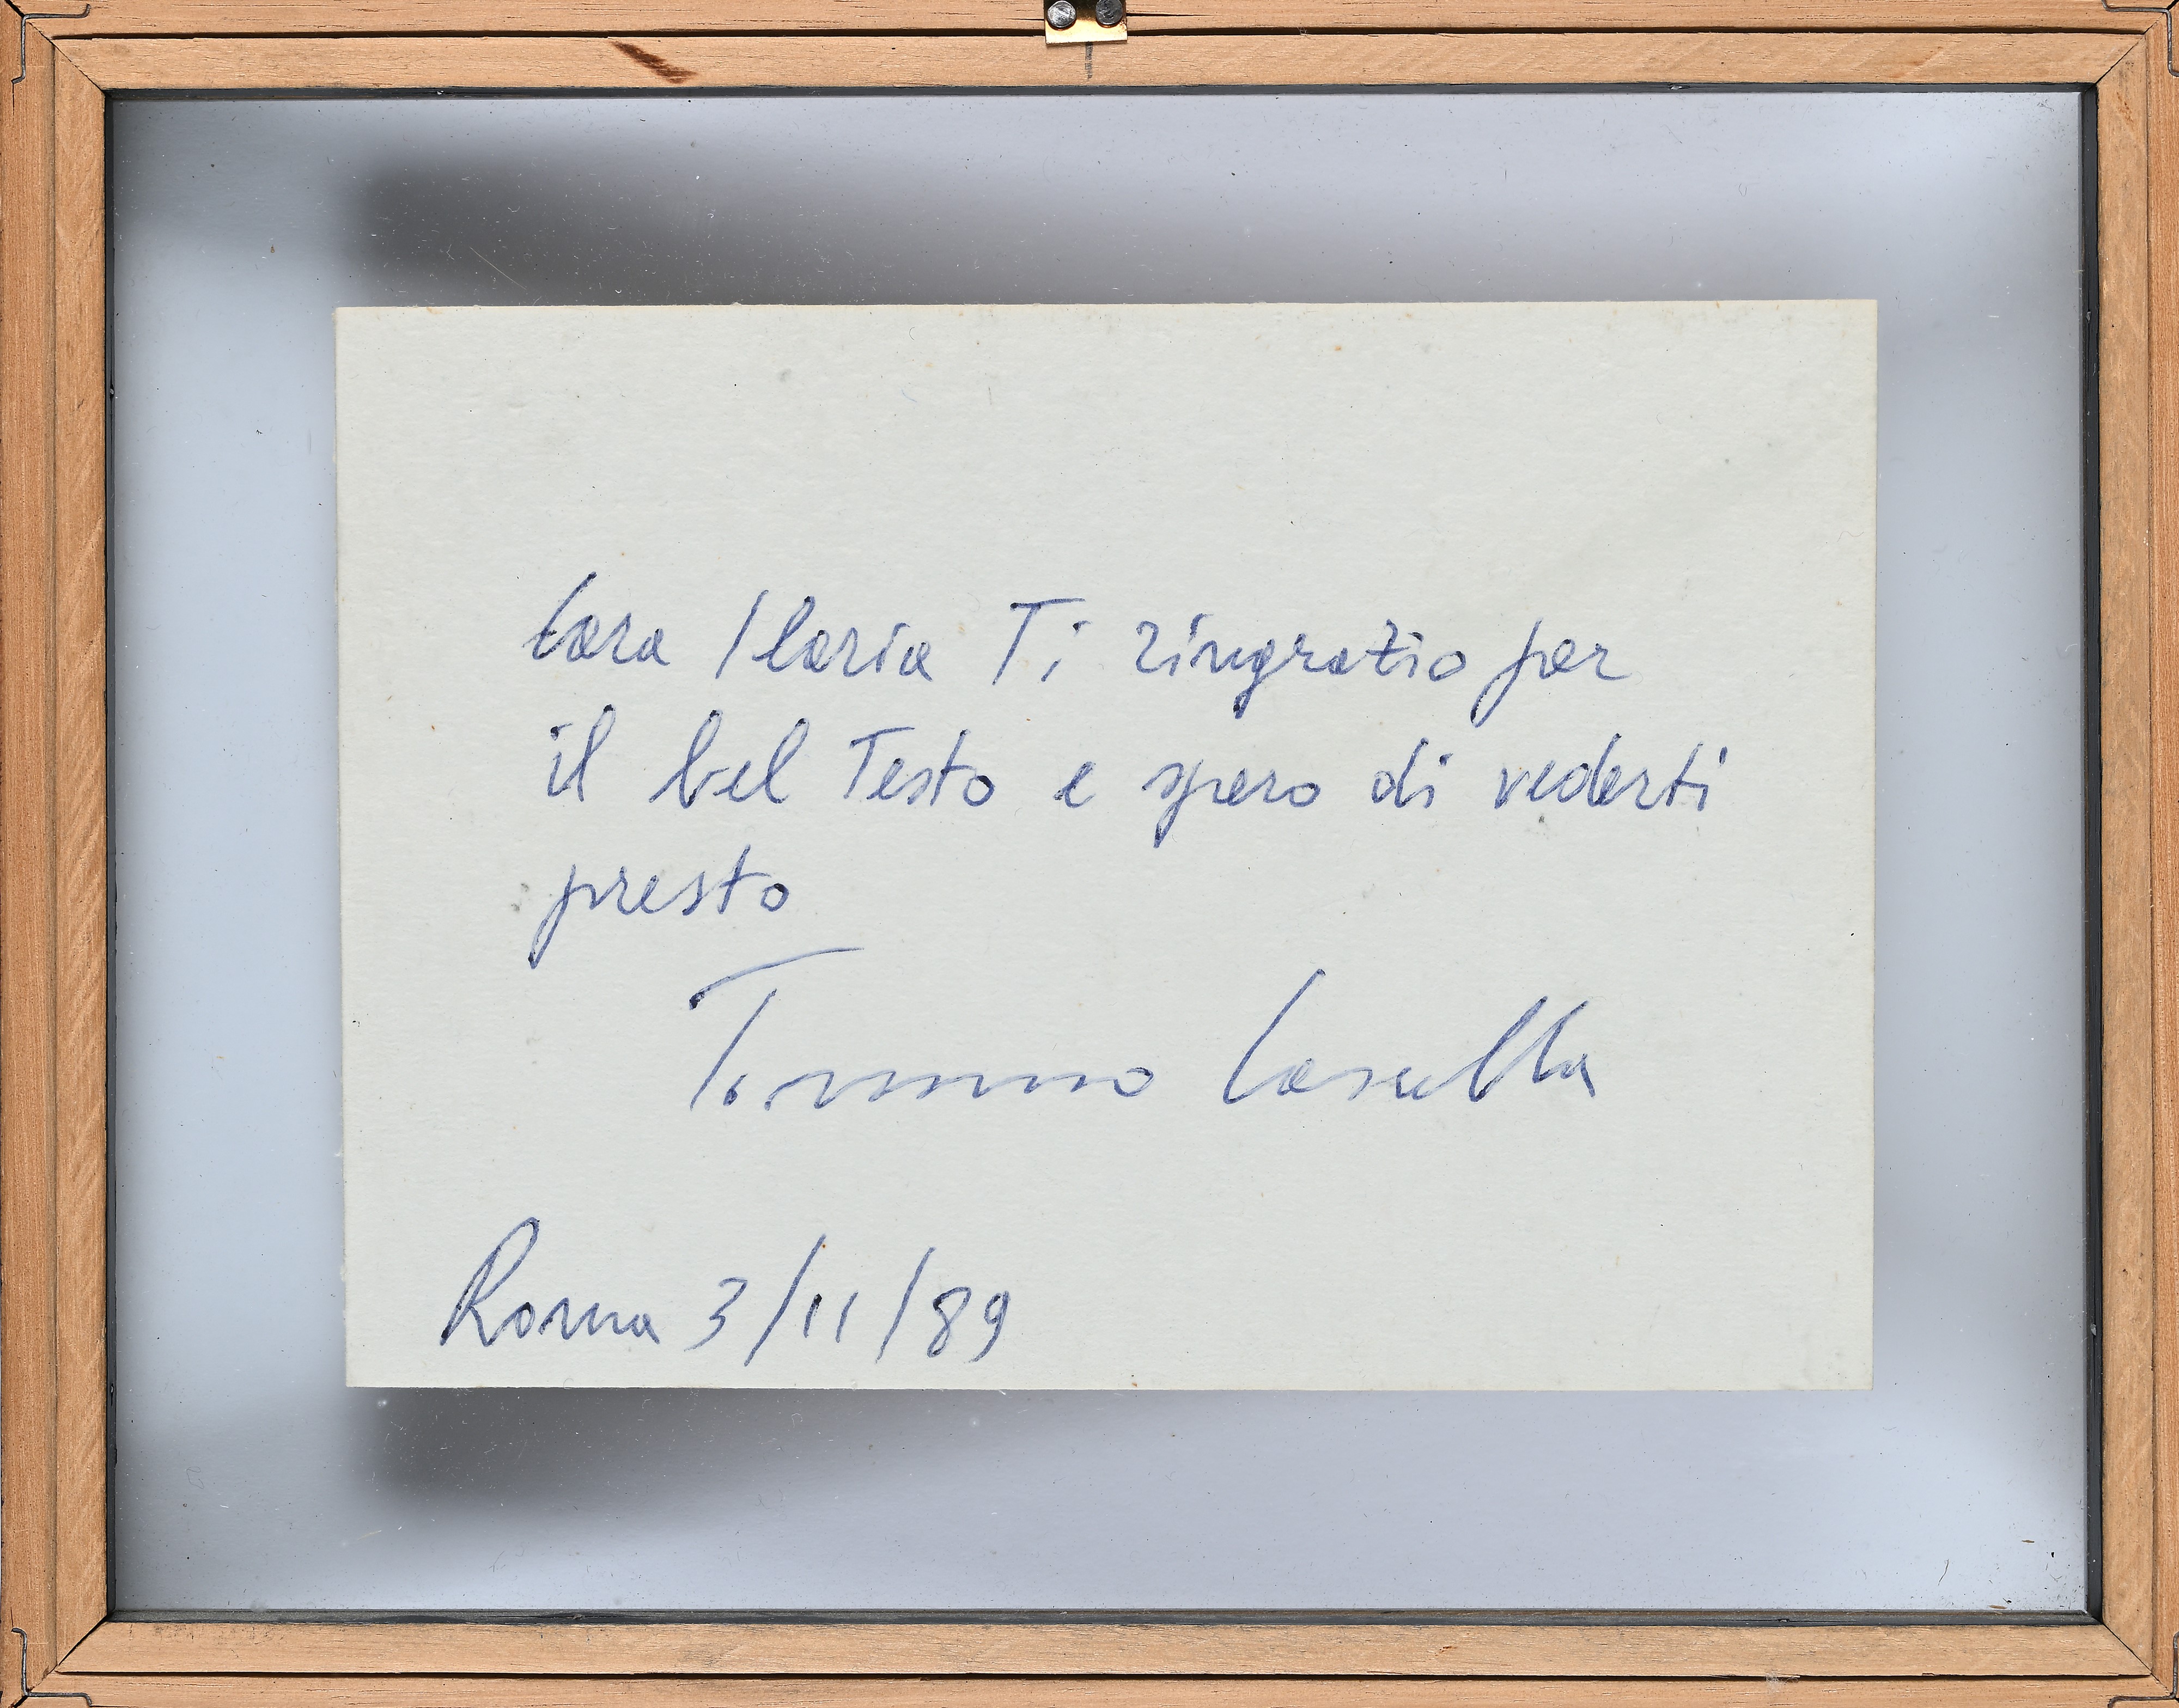 Cara Ilaria Ti ringrazio per
il bel Testo e spero di vederti
presto
Tommaso Cascella
Roma 3/11/89